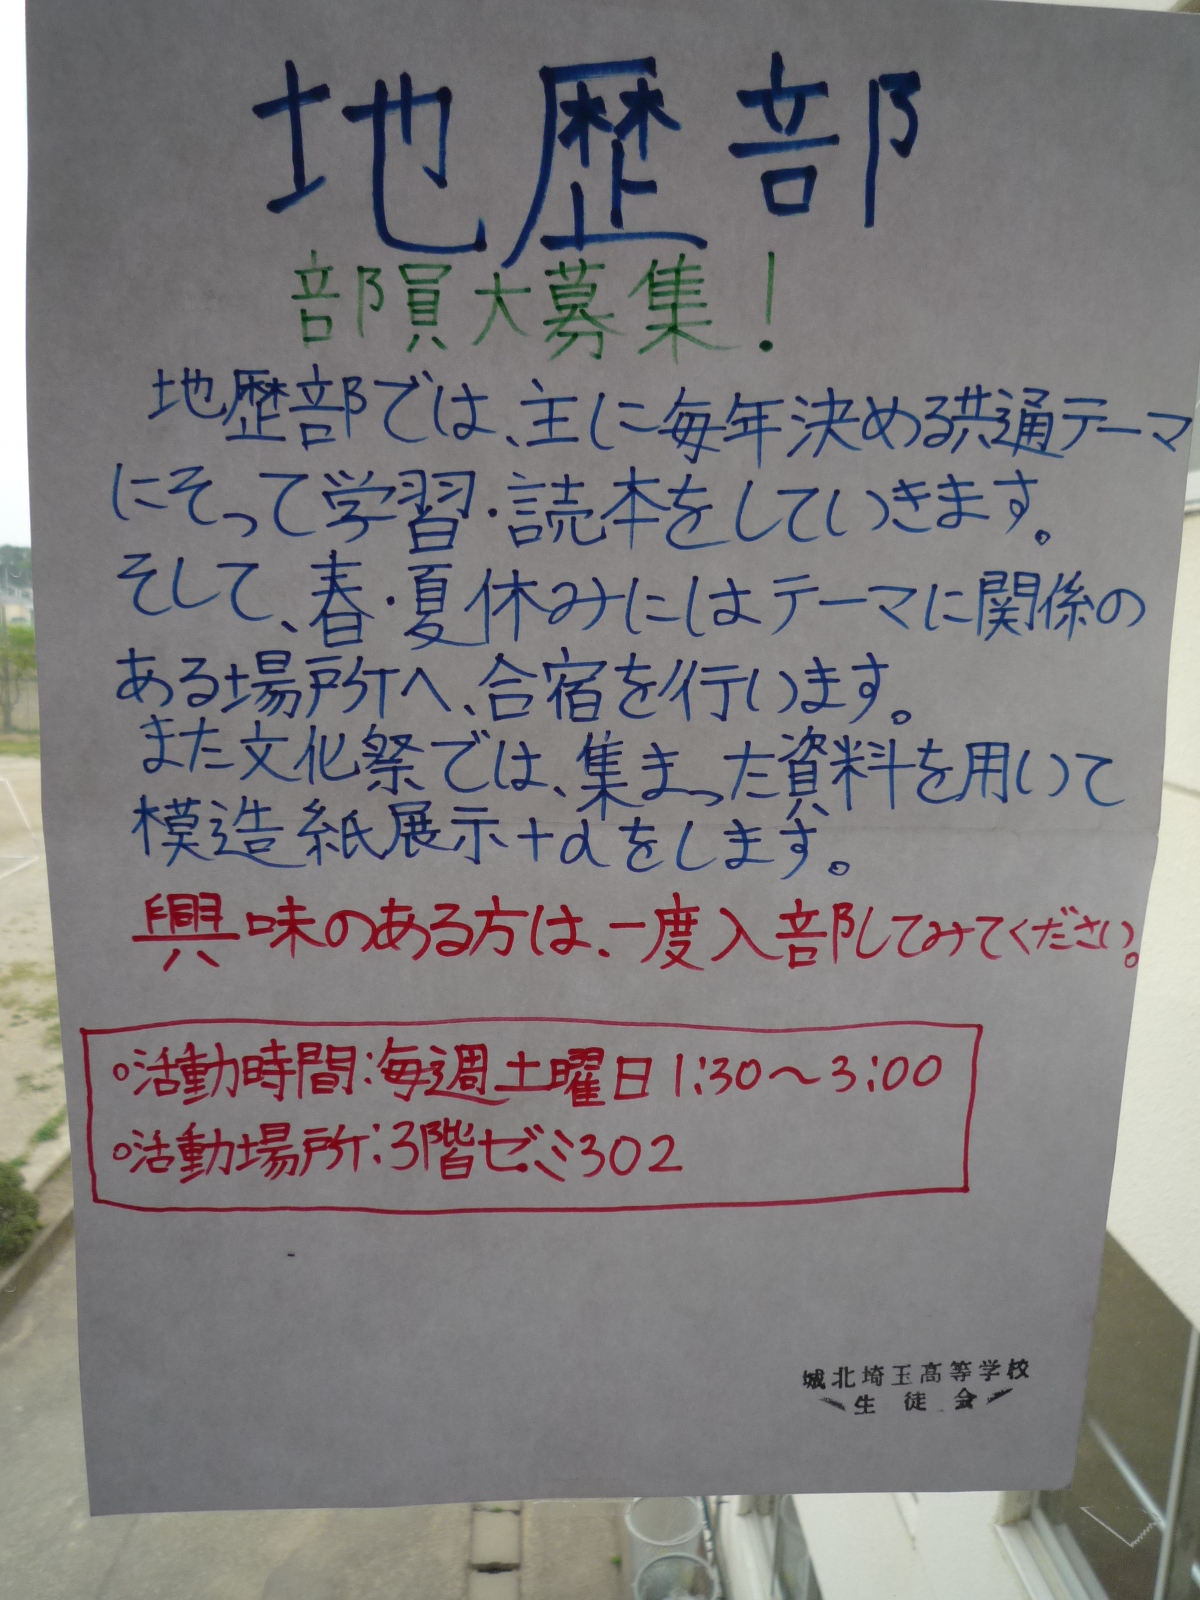 地歴部
部員大募集!
地歴部では、主に毎年決める共通テーマ
にそって学習・読本をしていきます。
そして、春・夏休みにはテーマに関係の
ある場所へ、合宿を行います。
また文化祭では、集まった資料を用いて
模造紙展示+αをします。
興味のある方は、一度入部してみてください。
○活動時間:毎週土曜日1:30〜3:00
○活動場所:3階ゼミ302
城北埼玉高等学校
生徒会